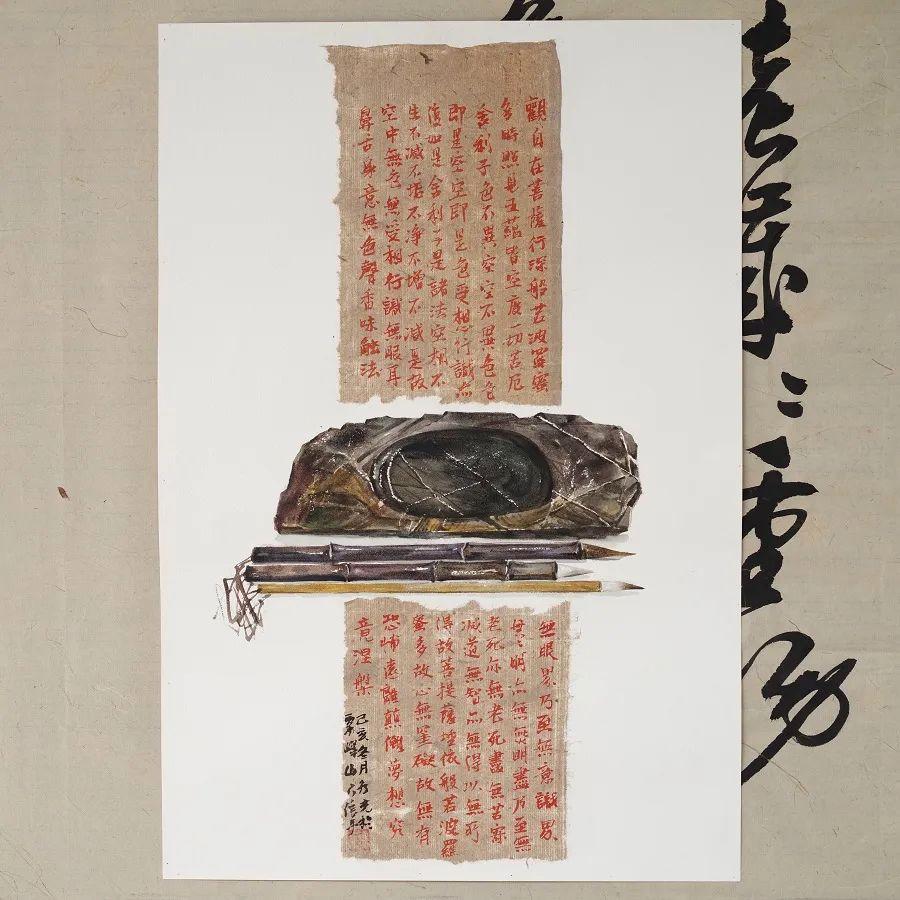 觀自在菩薩行深般若波羅蜜
多時照見五蘊皆空度一切苦厄
舍利子色不異空空不異色色
即是空空即是色受想行識亦
復如是舍利子是諸法空相不
生不滅不垢不淨不增不減是故
空中無色無受想行識無眼耳
鼻舌身意無色聲香味觸法
無眼界乃至無意識界
無〻明亦無無明盡乃至無
老死亦無老死盡無苦寂
滅道無智亦無得以無所
得故菩提薩埵依般若波羅
蜜多故心無罣礙故無有
恐怖遠離顛倒夢想究
竟涅槃
己亥冬月